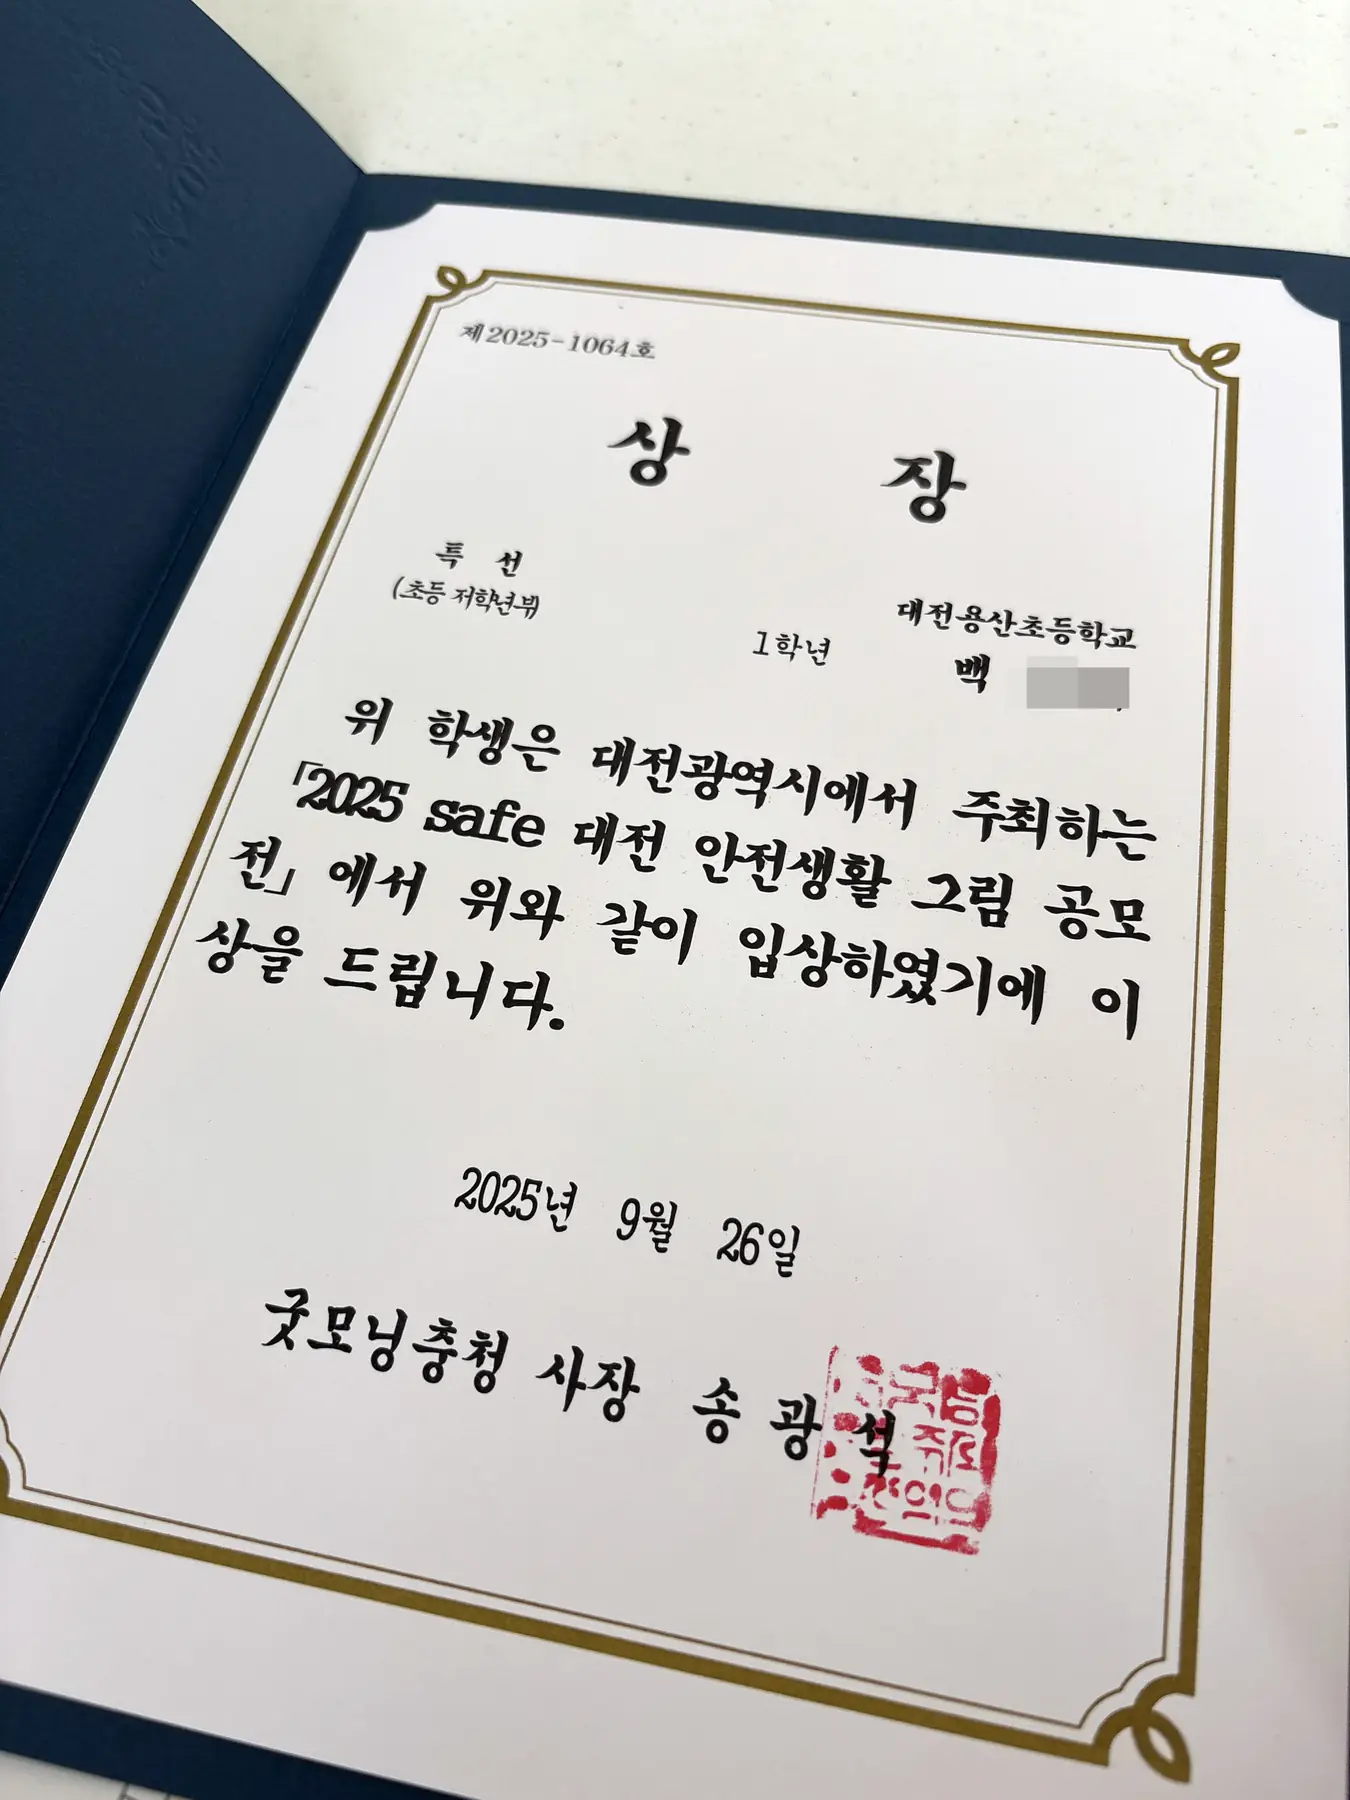 제2025-1064호
상 장
특 선
(초등 저학년부)
대전용산초등학교
1학년 백
위 학생은 대전광역시에서 주최하는
「2025 safe 대전 안전생활 그림 공모
전」에서 위와 같이 입상하였기에 이
상을 드립니다.
2025년 9월 26일
굿모닝충청 사장 송 광 석